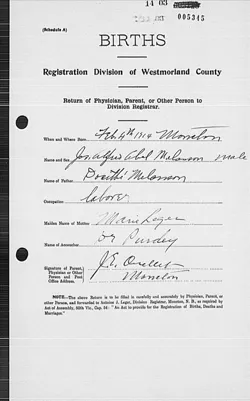 14 03
005345
(Schedule A)
BIRTHS
Registration Division of Westmorland County
Return of Physician, Parent, or Other Person to
Division Registrar.
When and Where Born Feb 4th 1914 Moncton
Name and Sex Jos. Alfred Abel Melanson male
Name of Father Melanson
Occupation laborer
Maiden Name of Mother Marie Leger
Name of Accoucheur Dr Purdy
Signature of Parent,
Physician or Other
Person and Post
Office Address, J. E. Ouellet
Moncton
NOTE.—The above Return is to be filled in carefully and accurately by Physician, Parent, or
other Person, and forwarded to Antoine J. Leger, Division Registrar, Moncton, N. B., as required by
Act of Assembly, 50th Vic., Cap. 24: "An Act to provide for the Registration of Births, Deaths and
Marriages."